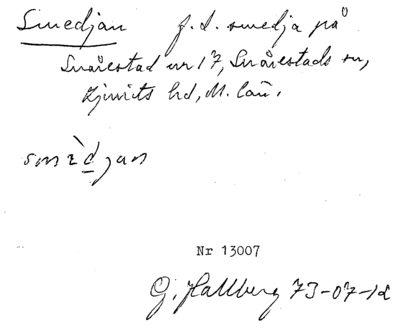 Smedjan f.d. smedja på
Snårestad nr 17, Snårestads sn,
Ljunits hd, M. län.
smèdjan
Nr 13007
G. Hallberg 73-07-12